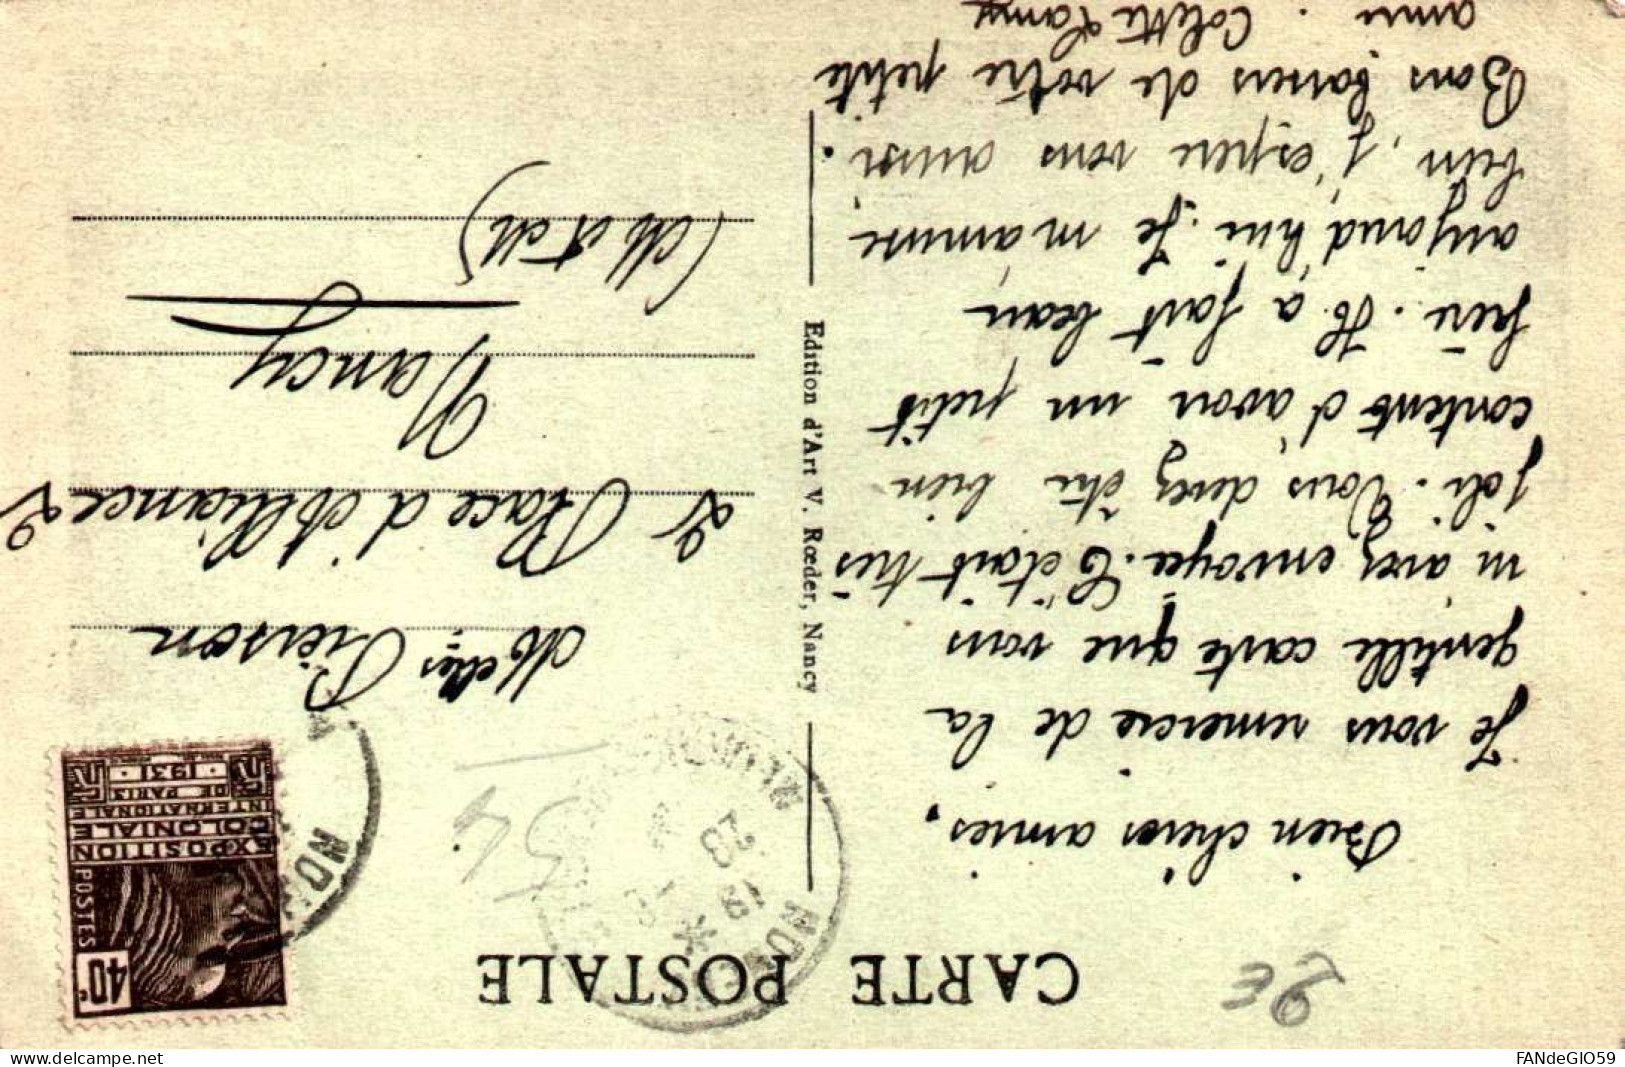 CARTE POSTALE
Bien chères amies,
Je vous remercie de la
gentille carte que vous
m'avez envoyée. C'était très
joli. Vous devez être bien
contents d'avoir un petit
frère. Il a fait beau
aujourd'hui. Je m'amuse
bien, j'espère vous aussi.
Bons baisers de votre petite
amie. Colette
Edition d'Art V. Rœder, Nancy
Melles Pierson
2 Place d'Alliance 2
Nancy
(M et M)
40c
POSTES
EXPOSITION
COLONIALE
INTERNATIONALE
DE PARIS
· 1931 ·
19
23
54
2€
www.delcampe.net
FANdeGIO59